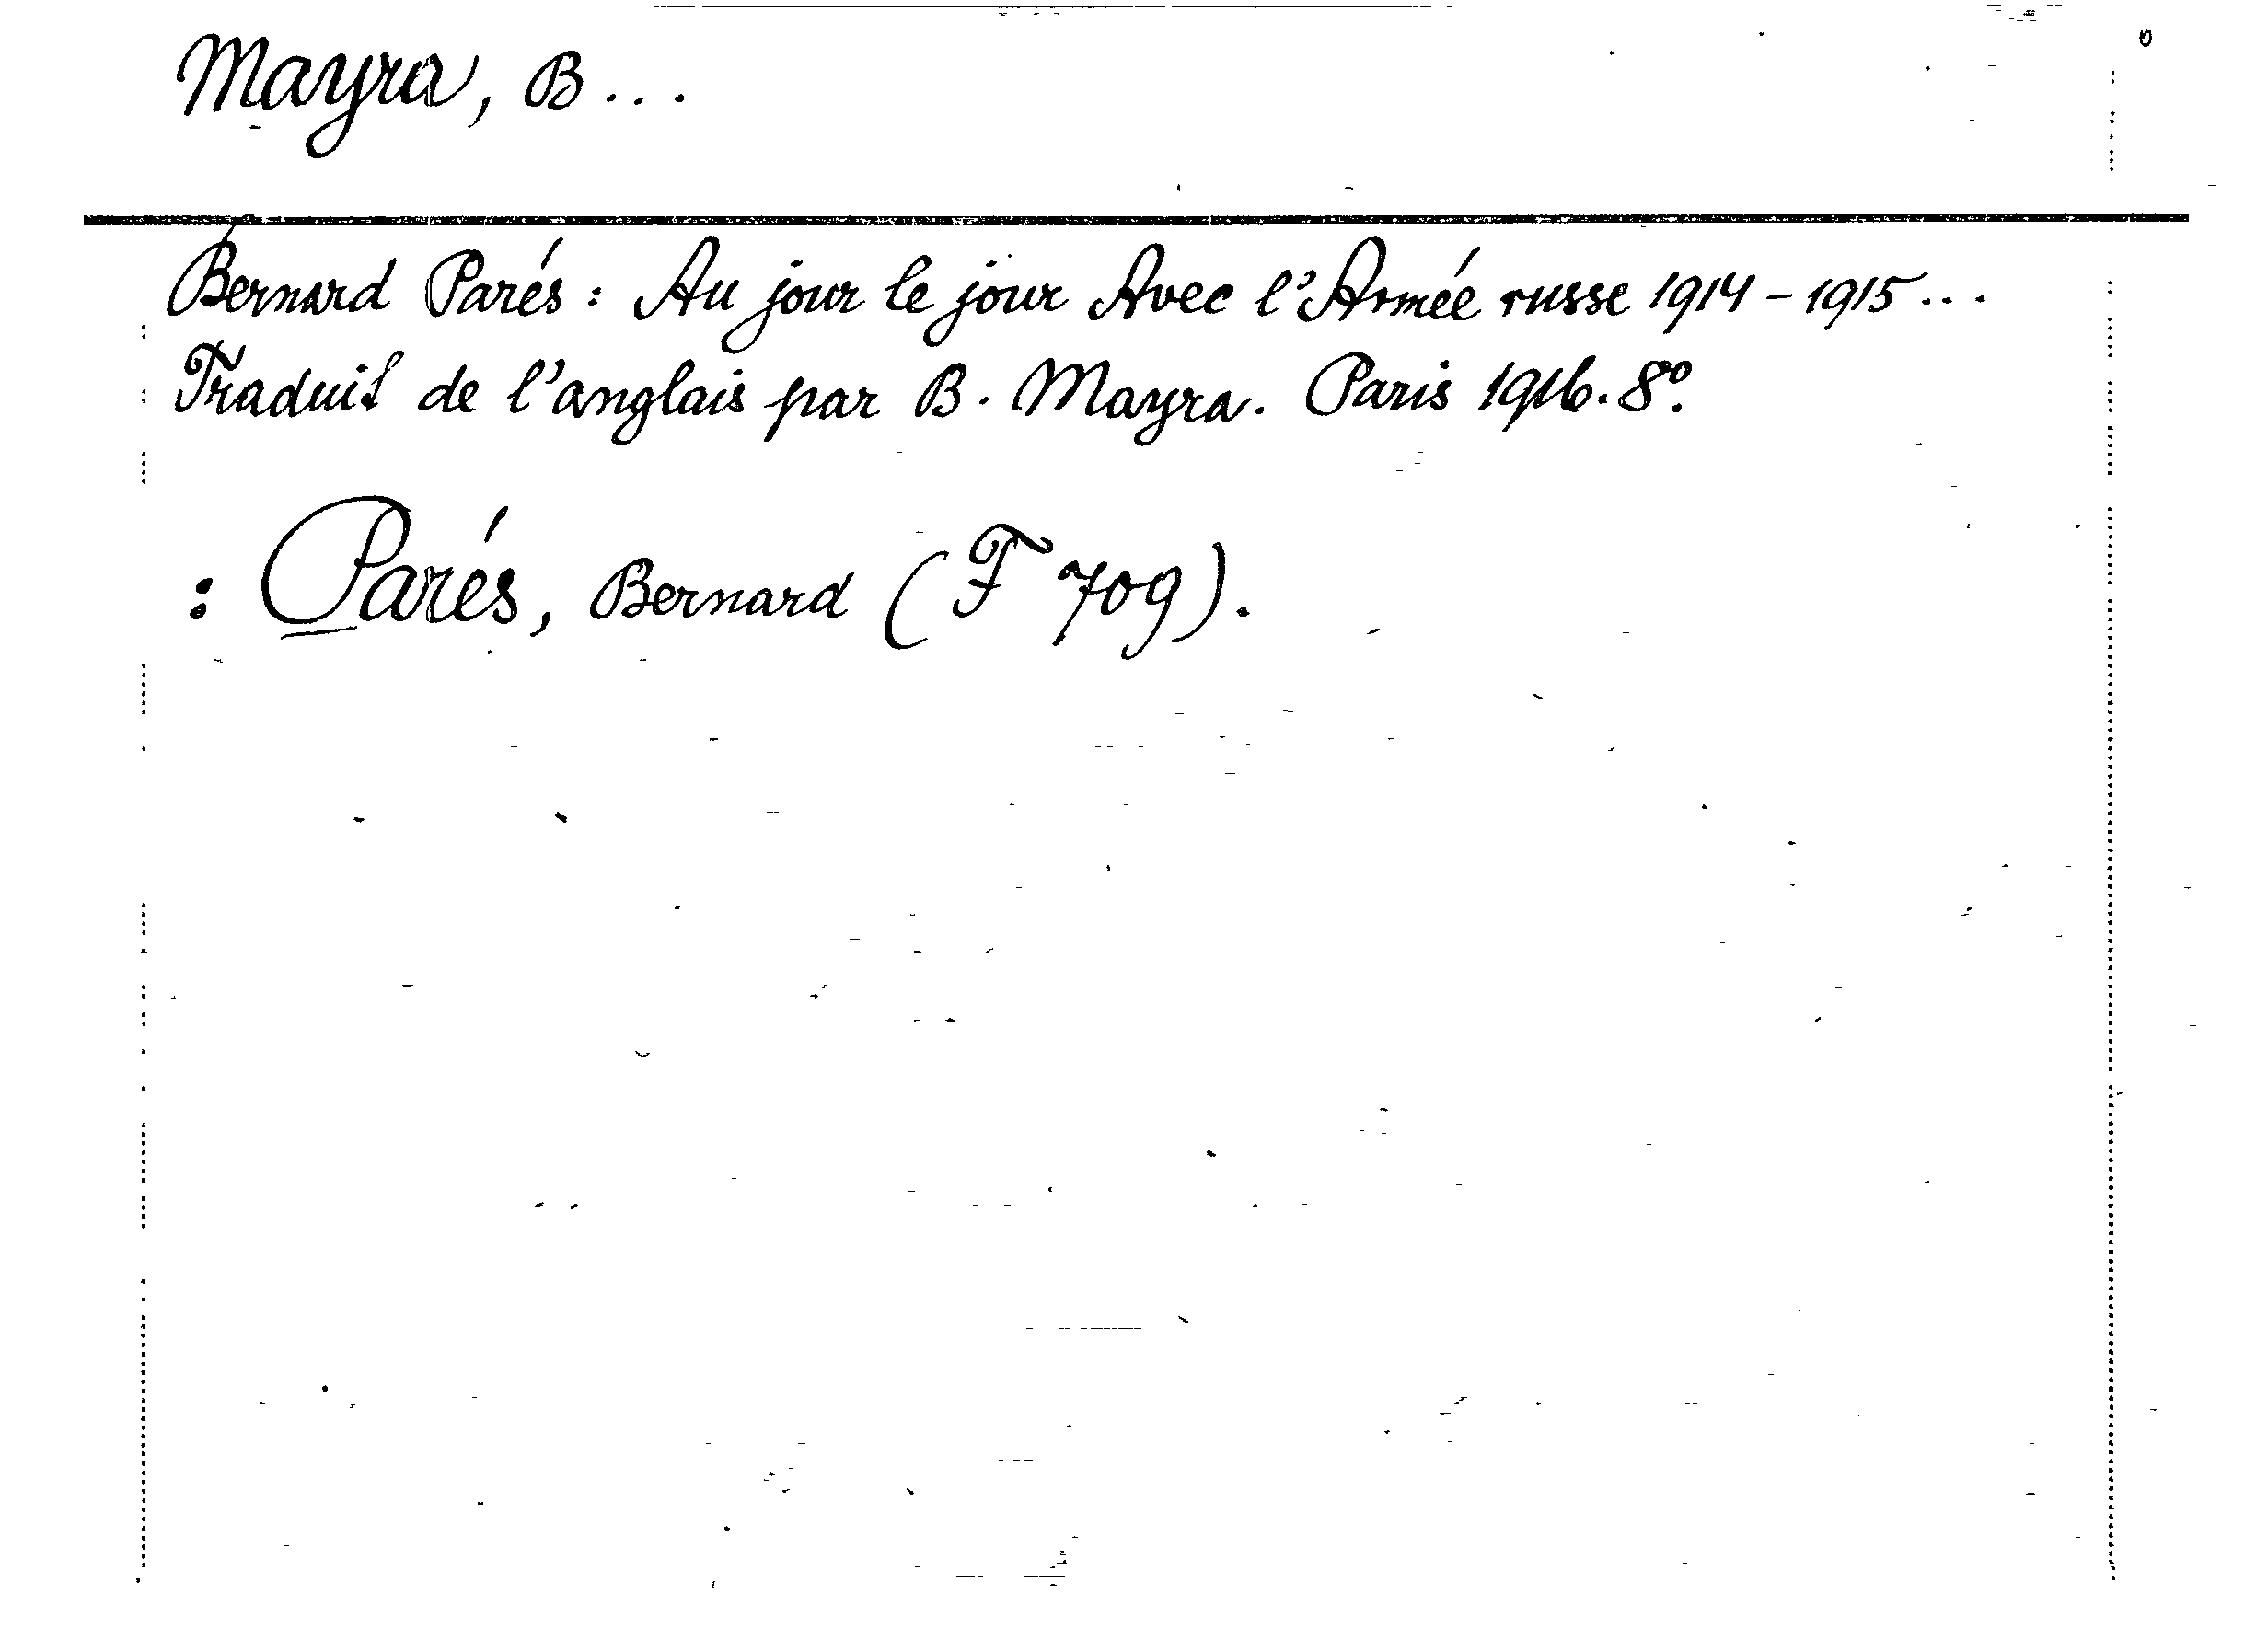 Mayra, B...
Bernard Parés: Au jour le jour Avec l'Armée russe 1914-1915...
Traduit de l'anglais par B. Mayra. Paris 1916. 8º.
: Parés, Bernard (F 709).